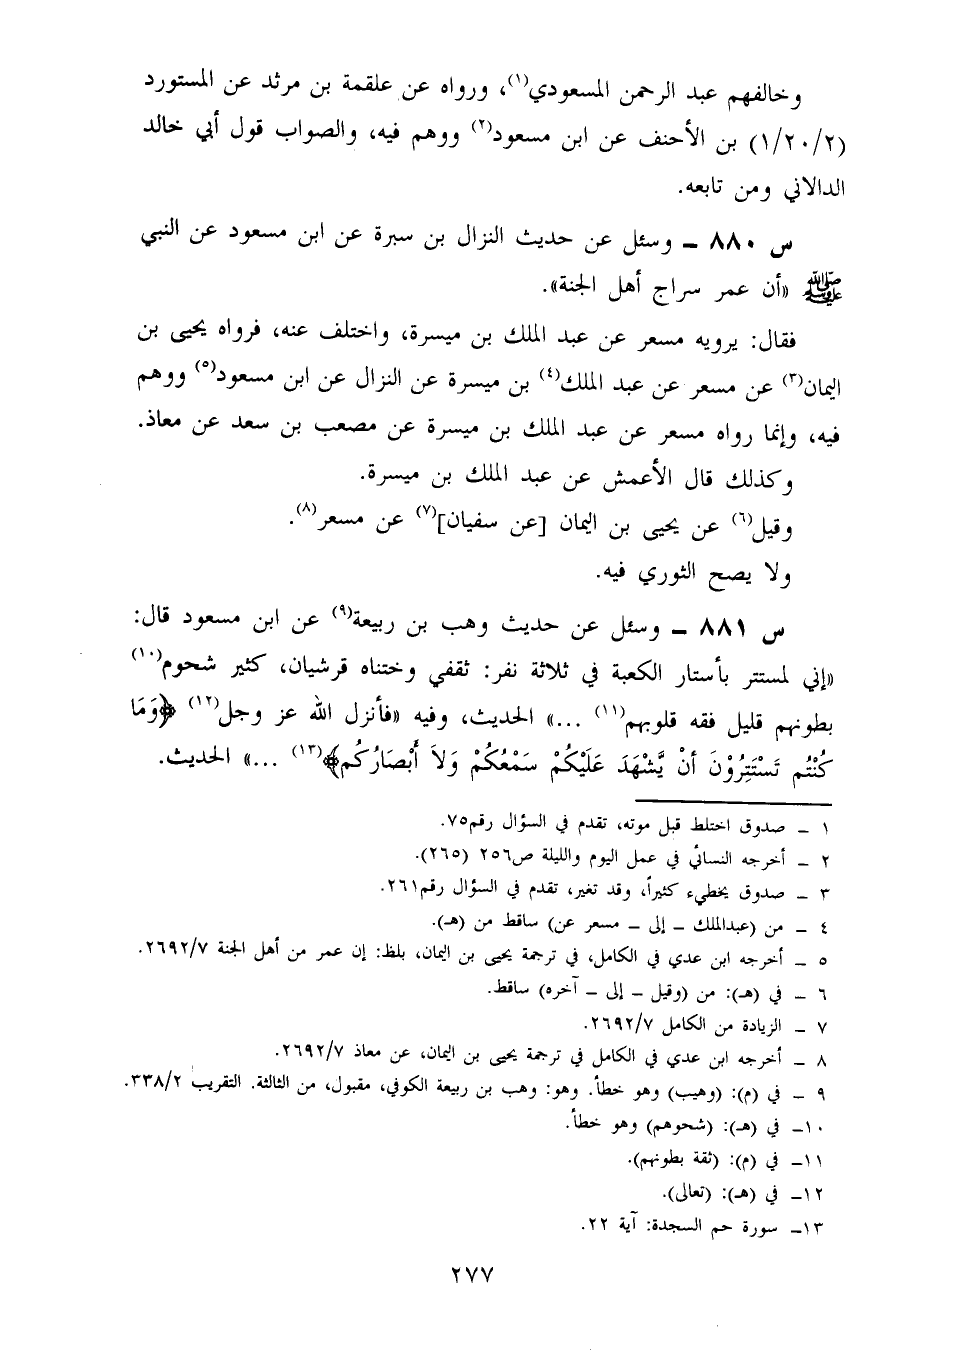 وخالفهم عبد الرحمن المسعودي(١)، ورواه عن علقمة بن مرثد عن المستورد
(١/٢٠/٢) بن الأحنف عن ابن مسعود(٢) ووهم فيه، والصواب قول أبي خالد
الدالاني ومن تابعه.
س ٨٨٠ ـ وسئل عن حديث النزال بن سبرة عن ابن مسعود عن النبي
ﷺ «أن عمر سراج أهل الجنة».
فقال: يرويه مسعر عن عبد الملك بن ميسرة، واختلف عنه، فرواه يحيى بن
اليمان(٣) عن مسعر عن عبد الملك(٤) بن ميسرة عن النزال عن ابن مسعود(٥) ووهم
فيه، وإنما رواه مسعر عن عبد الملك بن ميسرة عن مصعب بن سعد عن معاذ.
وكذلك قال الأعمش عن عبد الملك بن ميسرة.
وقيل(٦) عن يحيى بن اليمان [عن سفيان](٧) عن مسعر(٨).
ولا يصح الثوري فيه.
س ٨٨١ ـ وسئل عن حديث وهب بن ربيعة(٩) عن ابن مسعود قال:
«إني لمستتر بأستار الكعبة في ثلاثة نفر: ثقفي وختناه قرشيان، كثير شحوم(١٠)
بطونهم قليل فقه قلوبهم(١١) ...» الحديث، وفيه «فأنزل الله عز وجل(١٢) ﴿وَمَا
كُنْتُم تَسْتَتِرُوْنَ أنْ يَّشْهَدَ عَلَيْكُمْ سَمْعُكُمْ وَلاَ أَبْصَارُكُم﴾(١٣) ...» الحديث.
١ ـ صدوق اختلط قبل موته، تقدم في السؤال رقم٧٥.
٢ ـ أخرجه النسائي في عمل اليوم والليلة ص٢٥٦ (٢٦٥).
٣ ـ صدوق يخطيء كثيراً، وقد تغير، تقدم في السؤال رقم٢٦١.
٤ ـ من (عبدالملك ـ إلى ـ مسعر عن) ساقط من (هـ).
٥ ـ أخرجه ابن عدي في الكامل، في ترجمة يحيى بن اليمان، بلظ: إن عمر من أهل الجنة ٢٦٩٢/٧.
٦ ـ في (هـ): من (وقيل ـ إلى ـ آخره) ساقط.
٧ ـ الزيادة من الكامل ٢٦٩٢/٧.
٨ ـ أخرجه ابن عدي في الكامل في ترجمة يحيى بن اليمان، عن معاذ ٢٦٩٢/٧.
٩ ـ في (م): (وهيب) وهو خطأ. وهو: وهب بن ربيعة الكوفي، مقبول، من الثالثة. التقريب ٣٣٨/٢.
١٠ـ في (هـ): (شحوهم) وهو خطأ.
١١ـ في (م): (ثقة بطونهم).
١٢ـ في (هـ): (تعالى).
١٣ـ سورة حم السجدة: آية ٢٢.
٢٧٧